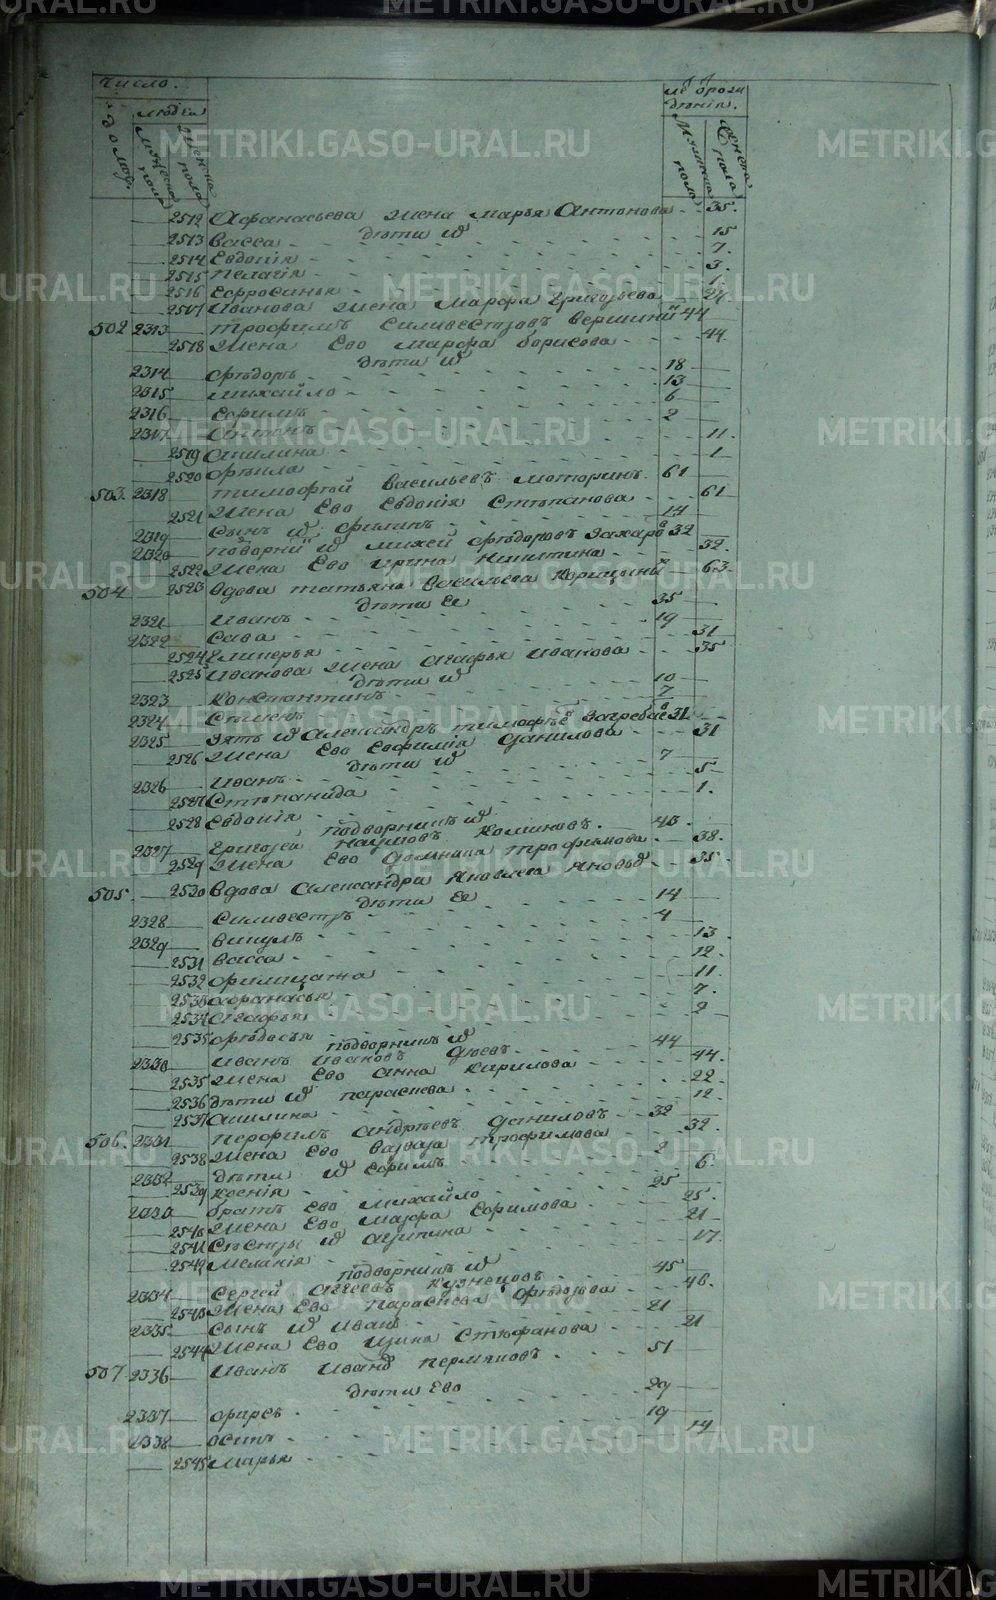 число.
людей
домов.
мужеска пола
женска пола
лѣ отрожденія.
мужеска пола
женска пола
2512 Афанасьева жена марья Антонова 35.
дѣти их
2513 васса 15
2514 Евдокія 7.
2515 пелагія 3
2516 Ефросинья 1
2517 Иванова жена марфа григорьева 27.
502 2313 трофимъ силивестровъ вершини 44
2518 жена Ево марфа борисова 44.
дѣти их
2314 Фѣдоръ 18
2315 михайло 13
2316 Ефимъ 6
2317 Антонъ 2
2519 Акилина 11.
2520 Фѣкла 1
503. 2318 тимофѣй васильевъ моторинъ 61
2521 жена Ево Евдокія Стѣпанова 61
2319 сынъ их филипъ 14
2320 подворнй их михей Фѣдоровъ Захаро 32
2522 жена Ево ирина никитина 32.
504 2523 вдова татьяна васильева 63.
дѣти Ее
2321 иванъ 35
2322 сава 19
2524 гликерья 31
2525 иванова жена агафья иванова 35
дѣти их
2323 константинъ 10
2324 7
2325 зять их Александръ тимофѣе загребае 31
2526 жена Ево Евфимія данилова 31
дѣти их
2326 иванъ 7
2527 Стѣпанида 5
2528 Евдокія 1.
подворникъ их
2327 григорей наумовъ 40
2529 жена Ево домника трофимова 38.
505. 2530 вдова Александра яковлева 35.
дѣти Ее
2328 силивестръ 14
2329 викулъ 4
2531 васса 13.
2532 филицата 12.
2533 афанасья 11.
2534 агафья 7.
2535 фѣдосья 2
подворникъ их
2330 иванъ ивановъ 44
2535 жена Ево анна кирилова 44.
2536 дѣти их параскева 22.
2537 Акилина 12.
506. 2331 перфилъ андрѣевъ даниловъ 32
2538 жена Ево варвара трофимова 32.
2332 дѣти их Ефимъ 2
2539 ксенія 6.
2333 братъ Ево михайло 25
2540 жена Ево марфа Ефимова 25.
2541 сѣстры их агрипина 21
2542 меланія 17.
подворникъ их
2334 сергей агеевъ кузнецовъ 45
2543 жена Ево параскева Фѣдорова 46.
2335 сынъ их иванъ 21
2544 жена Ево ирина стѣфанова 21
507 2336 иванъ иванъ пермяковъ 51
дѣти Ево
2337 фирсъ 29
2338 осипъ 19
2545 марья 14
METRIKI.GASO-URAL.RU